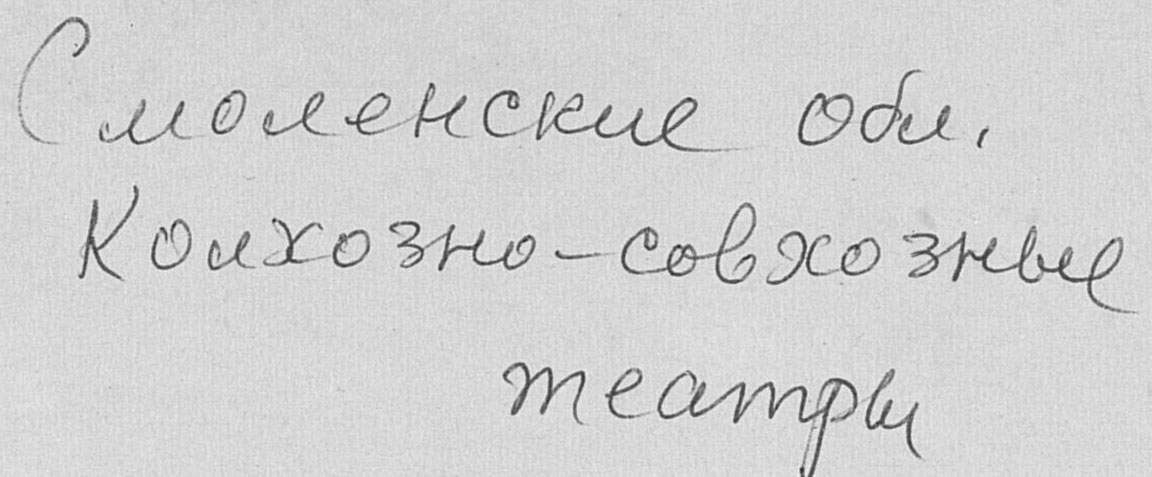 Смоленские обл.
Колхозно-совхозные
театры